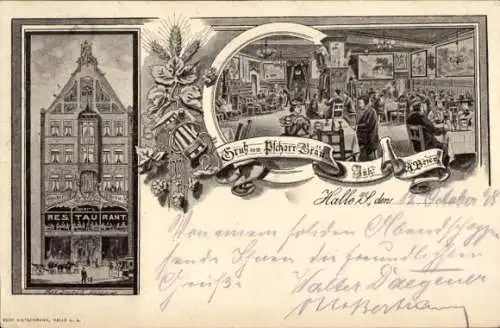 RESTAURANT
Gruß vom Pschorr-Bräu
Inh. A. Breu
Halle a/S., den 12. October 98
Von einem soliden Abendschoppen
sende Ihnen die freundlichsten
Grüße.
Walter Daegener
HALLE a. S.